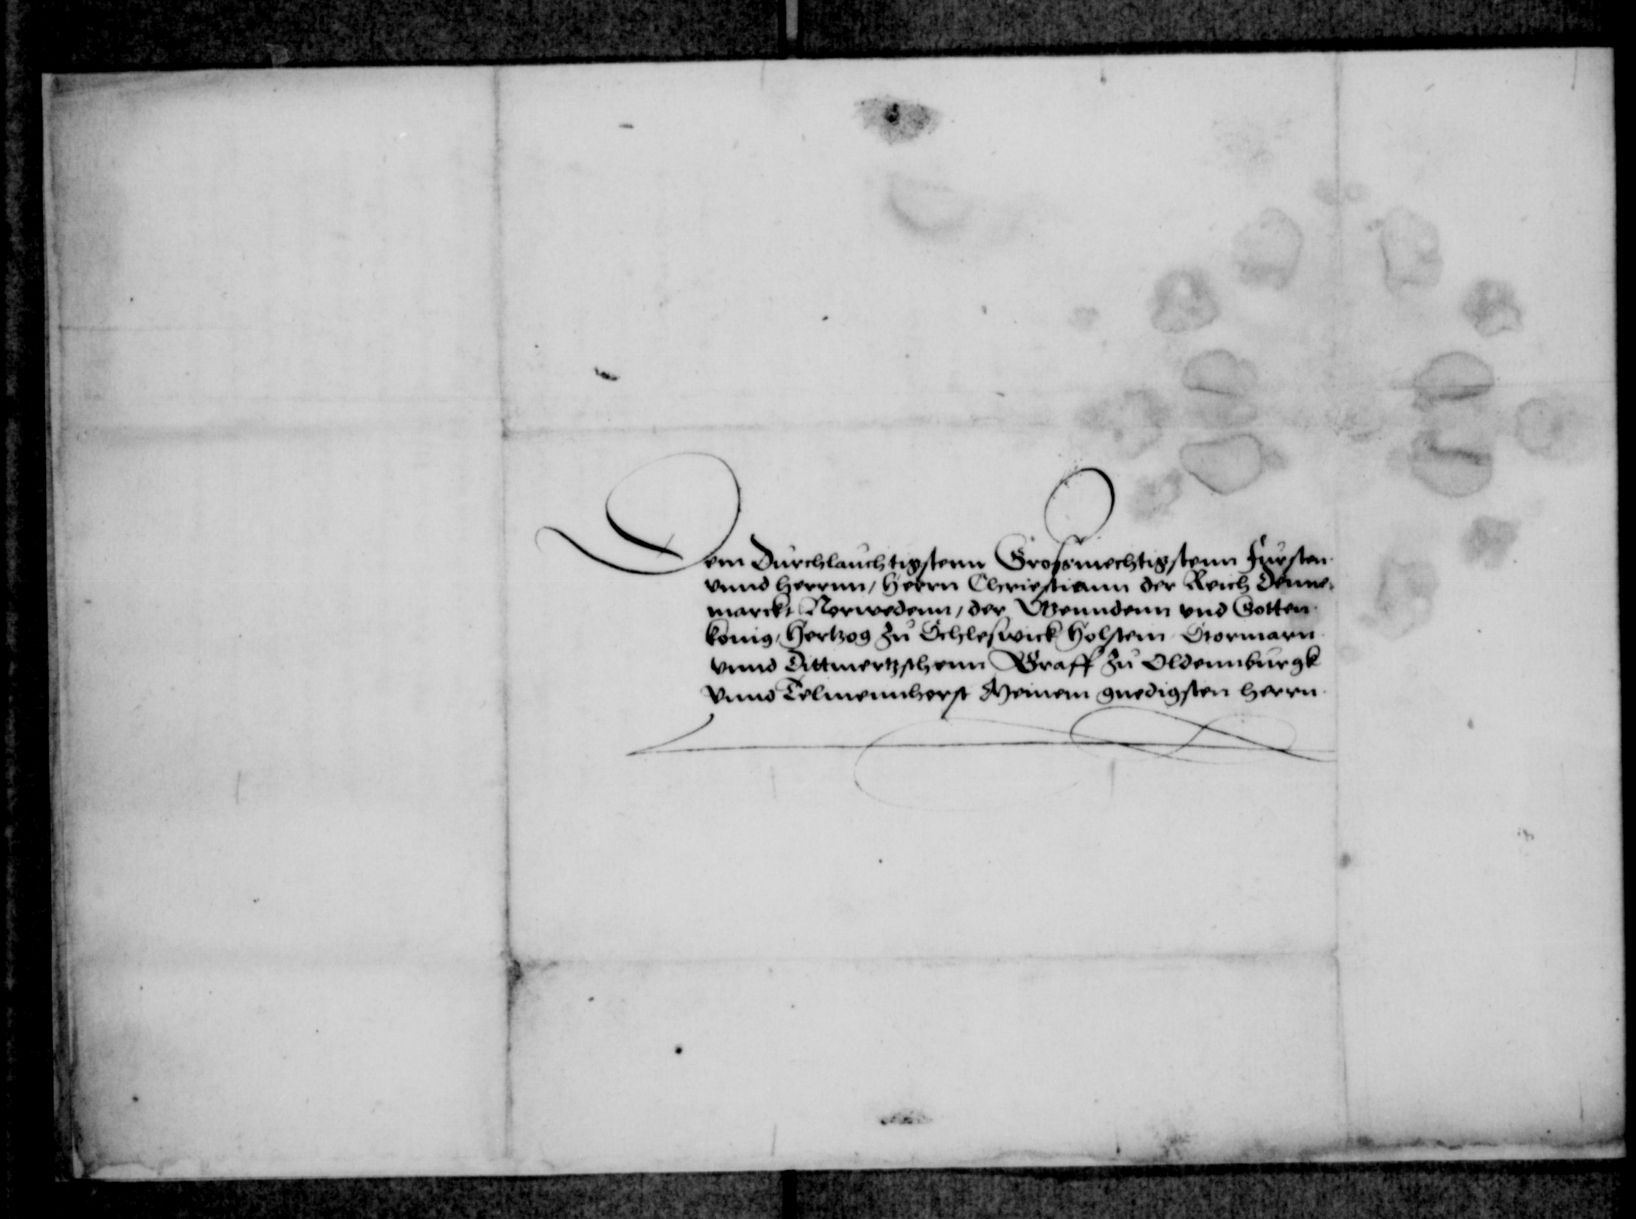 Dem Durchlauchtigstenn Grosmechtigstenn Fursten
vnnd herrnn, Herrn Chriestiann der Reich Denne-
marckt Norwedenn, der Wenndenn vnd Gotten
konig, Hertzog zu Schleswick Holstein Stormarn
vnnd Dittmertzschenn Graff zu Oldennburgk
vnnd Telmennhorst Meinem gnedigsten herrn